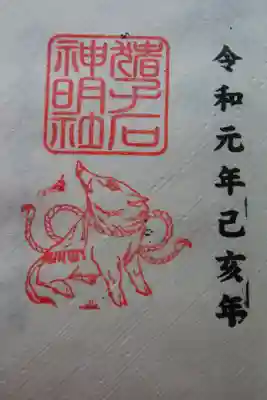 令和元年己亥年
猪子石
神明社